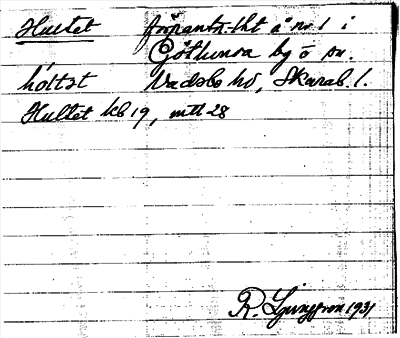 Hultet förpantn.-lht å nr 1 i
Götlunda by o sn.
hól̥tət Vadsbo hd, Skarab. l.
Hultet kb 19, mtl 28
R. Ljunggren 1931